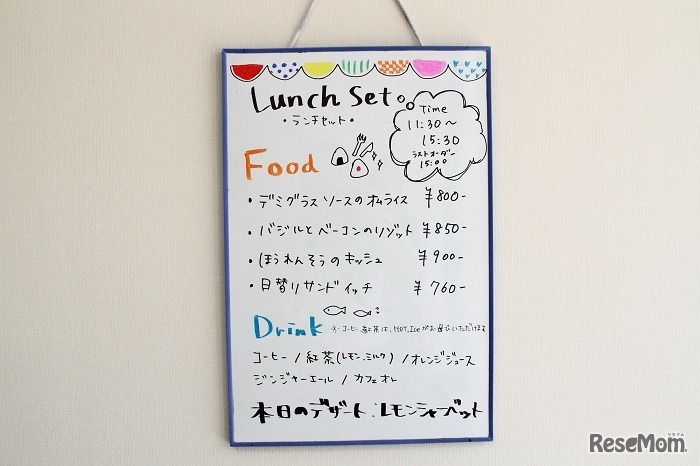 Lunch Set
・ランチセット・
Time
11:30～
15:30
ラストオーダー
15:00
Food
・デミグラスソースのオムライス ¥800-
・バジルとベーコンのリゾット ¥850-
・ほうれんそうのキッシュ ¥900-
・日替りサンドイッチ ¥760-
Drink ※コーヒー、紅茶は、HOT,Iceがお選びいただけます
コーヒー / 紅茶(レモン,ミルク) / オレンジジュース
ジンジャーエール / カフェオレ
本日のデザート:レモンシャーベット
リセマム
ReseMom